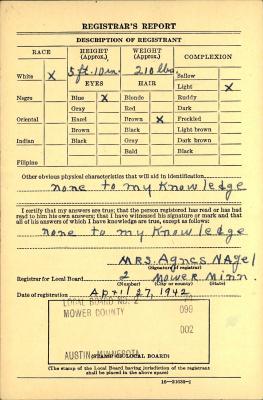 REGISTRAR'S REPORT
DESCRIPTION OF REGISTRANT
RACE HEIGHT (Approx.) WEIGHT (Approx.) COMPLEXION
White X 5 ft. 10 in. 210 lbs. Sallow
EYES HAIR Light X
Negro Blue X Blonde Ruddy
Gray Red Dark
Oriental Hazel Brown X Freckled
Brown Black Light brown
Indian Black Gray Dark brown
Bald Black
Filipino
Other obvious physical characteristics that will aid in identification
none to my knowledge
I certify that my answers are true; that the person registered has read or has had
read to him his own answers; that I have witnessed his signature or mark and that
all of his answers of which I have knowledge are true, except as follows:
none to my knowledge
MRS. Agnes Nagel
(Signature of registrar)
Registrar for Local Board 2 Mower Minn.
(Number) (City or county) (State)
Date of registration April 27, 1942
LOCAL BOARD NO. 2
MOWER COUNTY 099
002
AUSTIN, MINNESOTA
(STAMP OF LOCAL BOARD)
(The stamp of the Local Board having jurisdiction of the registrant
shall be placed in the above space)